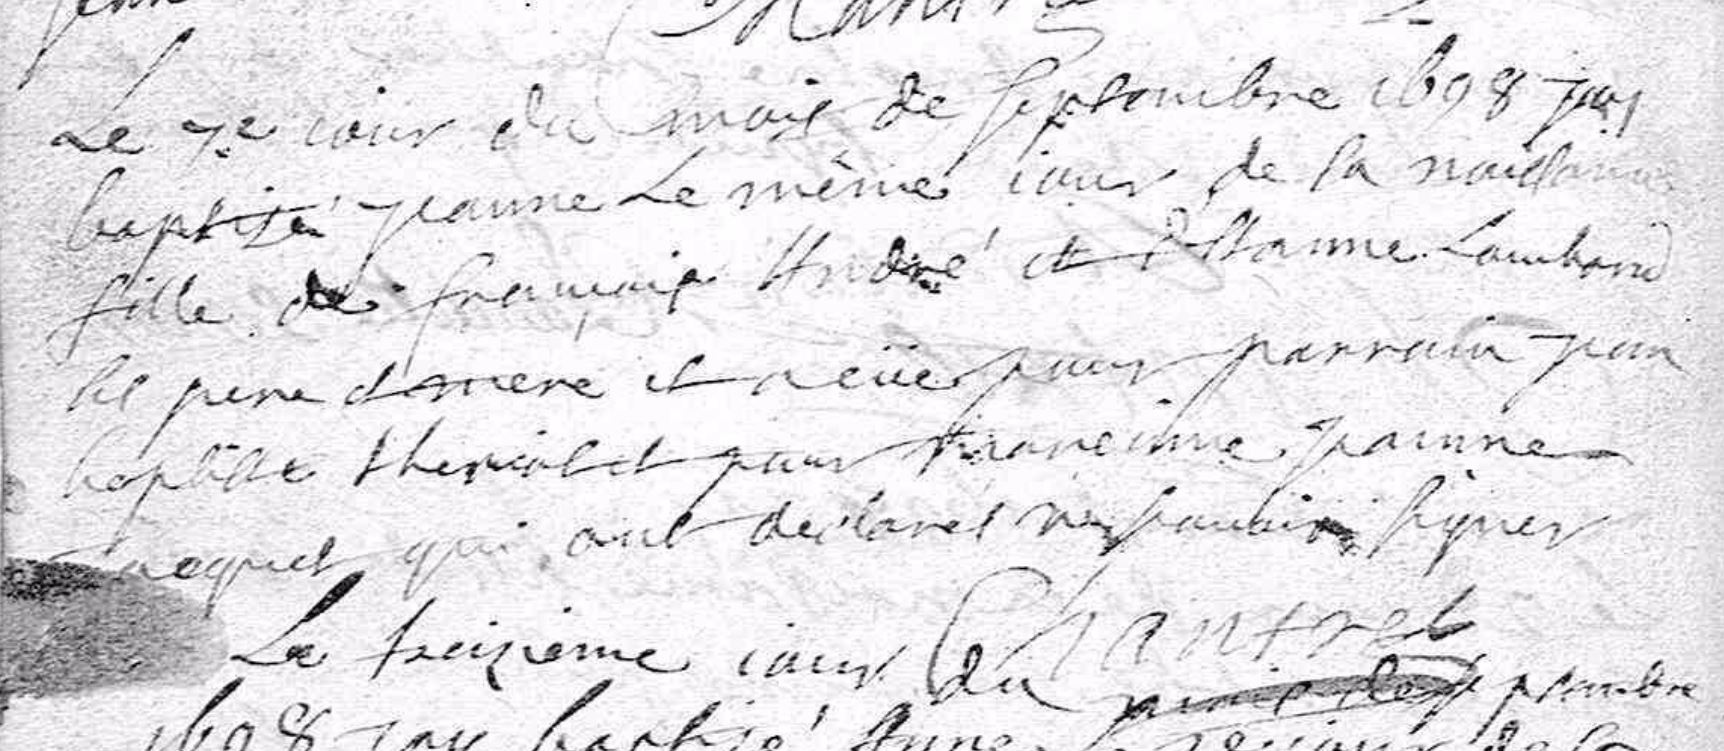 Le 7e iour du mois de septembre 1698 jay
baptisé jeanne Le même iour de sa naissance
fille de francois André et d'Etanne Lombard
ses pere et mere et a eüe pour parrain jean
baptiste theriot et pour mareinne jeanne
jacquet qui ont declarés ne sauoir signer
Chantrel
Le treizieme iour du mois de septembre
1698 jay baptisé Anne Le iour de sa